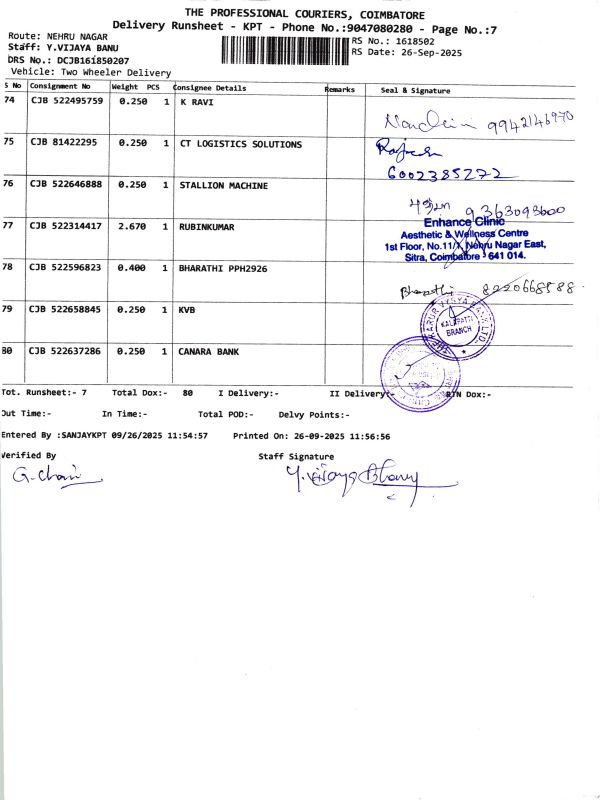 THE PROFESSIONAL COURIERS, COIMBATORE
Delivery Runsheet - KPT - Phone No.:9047080280 - Page No.:7
Route: NEHRU NAGAR
RS No.: 1618502
Staff: Y.VIJAYA BANU
RS Date: 26-Sep-2025
DRS No.: DCJB161850207
Vehicle: Two Wheeler Delivery
S No Consignment No Weight PCS Consignee Details Remarks Seal & Signature
74 CJB 522495759 0.250 1 K RAVI
9942146970
75 CJB 81422295 0.250 1 CT LOGISTICS SOLUTIONS Rajesh
6002385272
76 CJB 522646888 0.250 1 STALLION MACHINE
9363093600
77 CJB 522314417 2.670 1 RUBINKUMAR
Enhance Clinic
Aesthetic & Wellness Centre
1st Floor, No.11/1, Nehru Nagar East,
Sitra, Coimbatore - 641 014.
78 CJB 522596823 0.400 1 BHARATHI PPH2926
Bharathi 8220668588
79 CJB 522658845 0.250 1 KVB
THE KARUR VYSYA BANK LTD
KALAPATTI
BRANCH
80 CJB 522637286 0.250 1 CANARA BANK
Tot. Runsheet:- 7 Total Dox:- 80 I Delivery:- II Delivery:- RTN Dox:-
Out Time:- In Time:- Total POD:- Delvy Points:-
Entered By :SANJAYKPT 09/26/2025 11:54:57 Printed On: 26-09-2025 11:56:56
Verified By Staff Signature